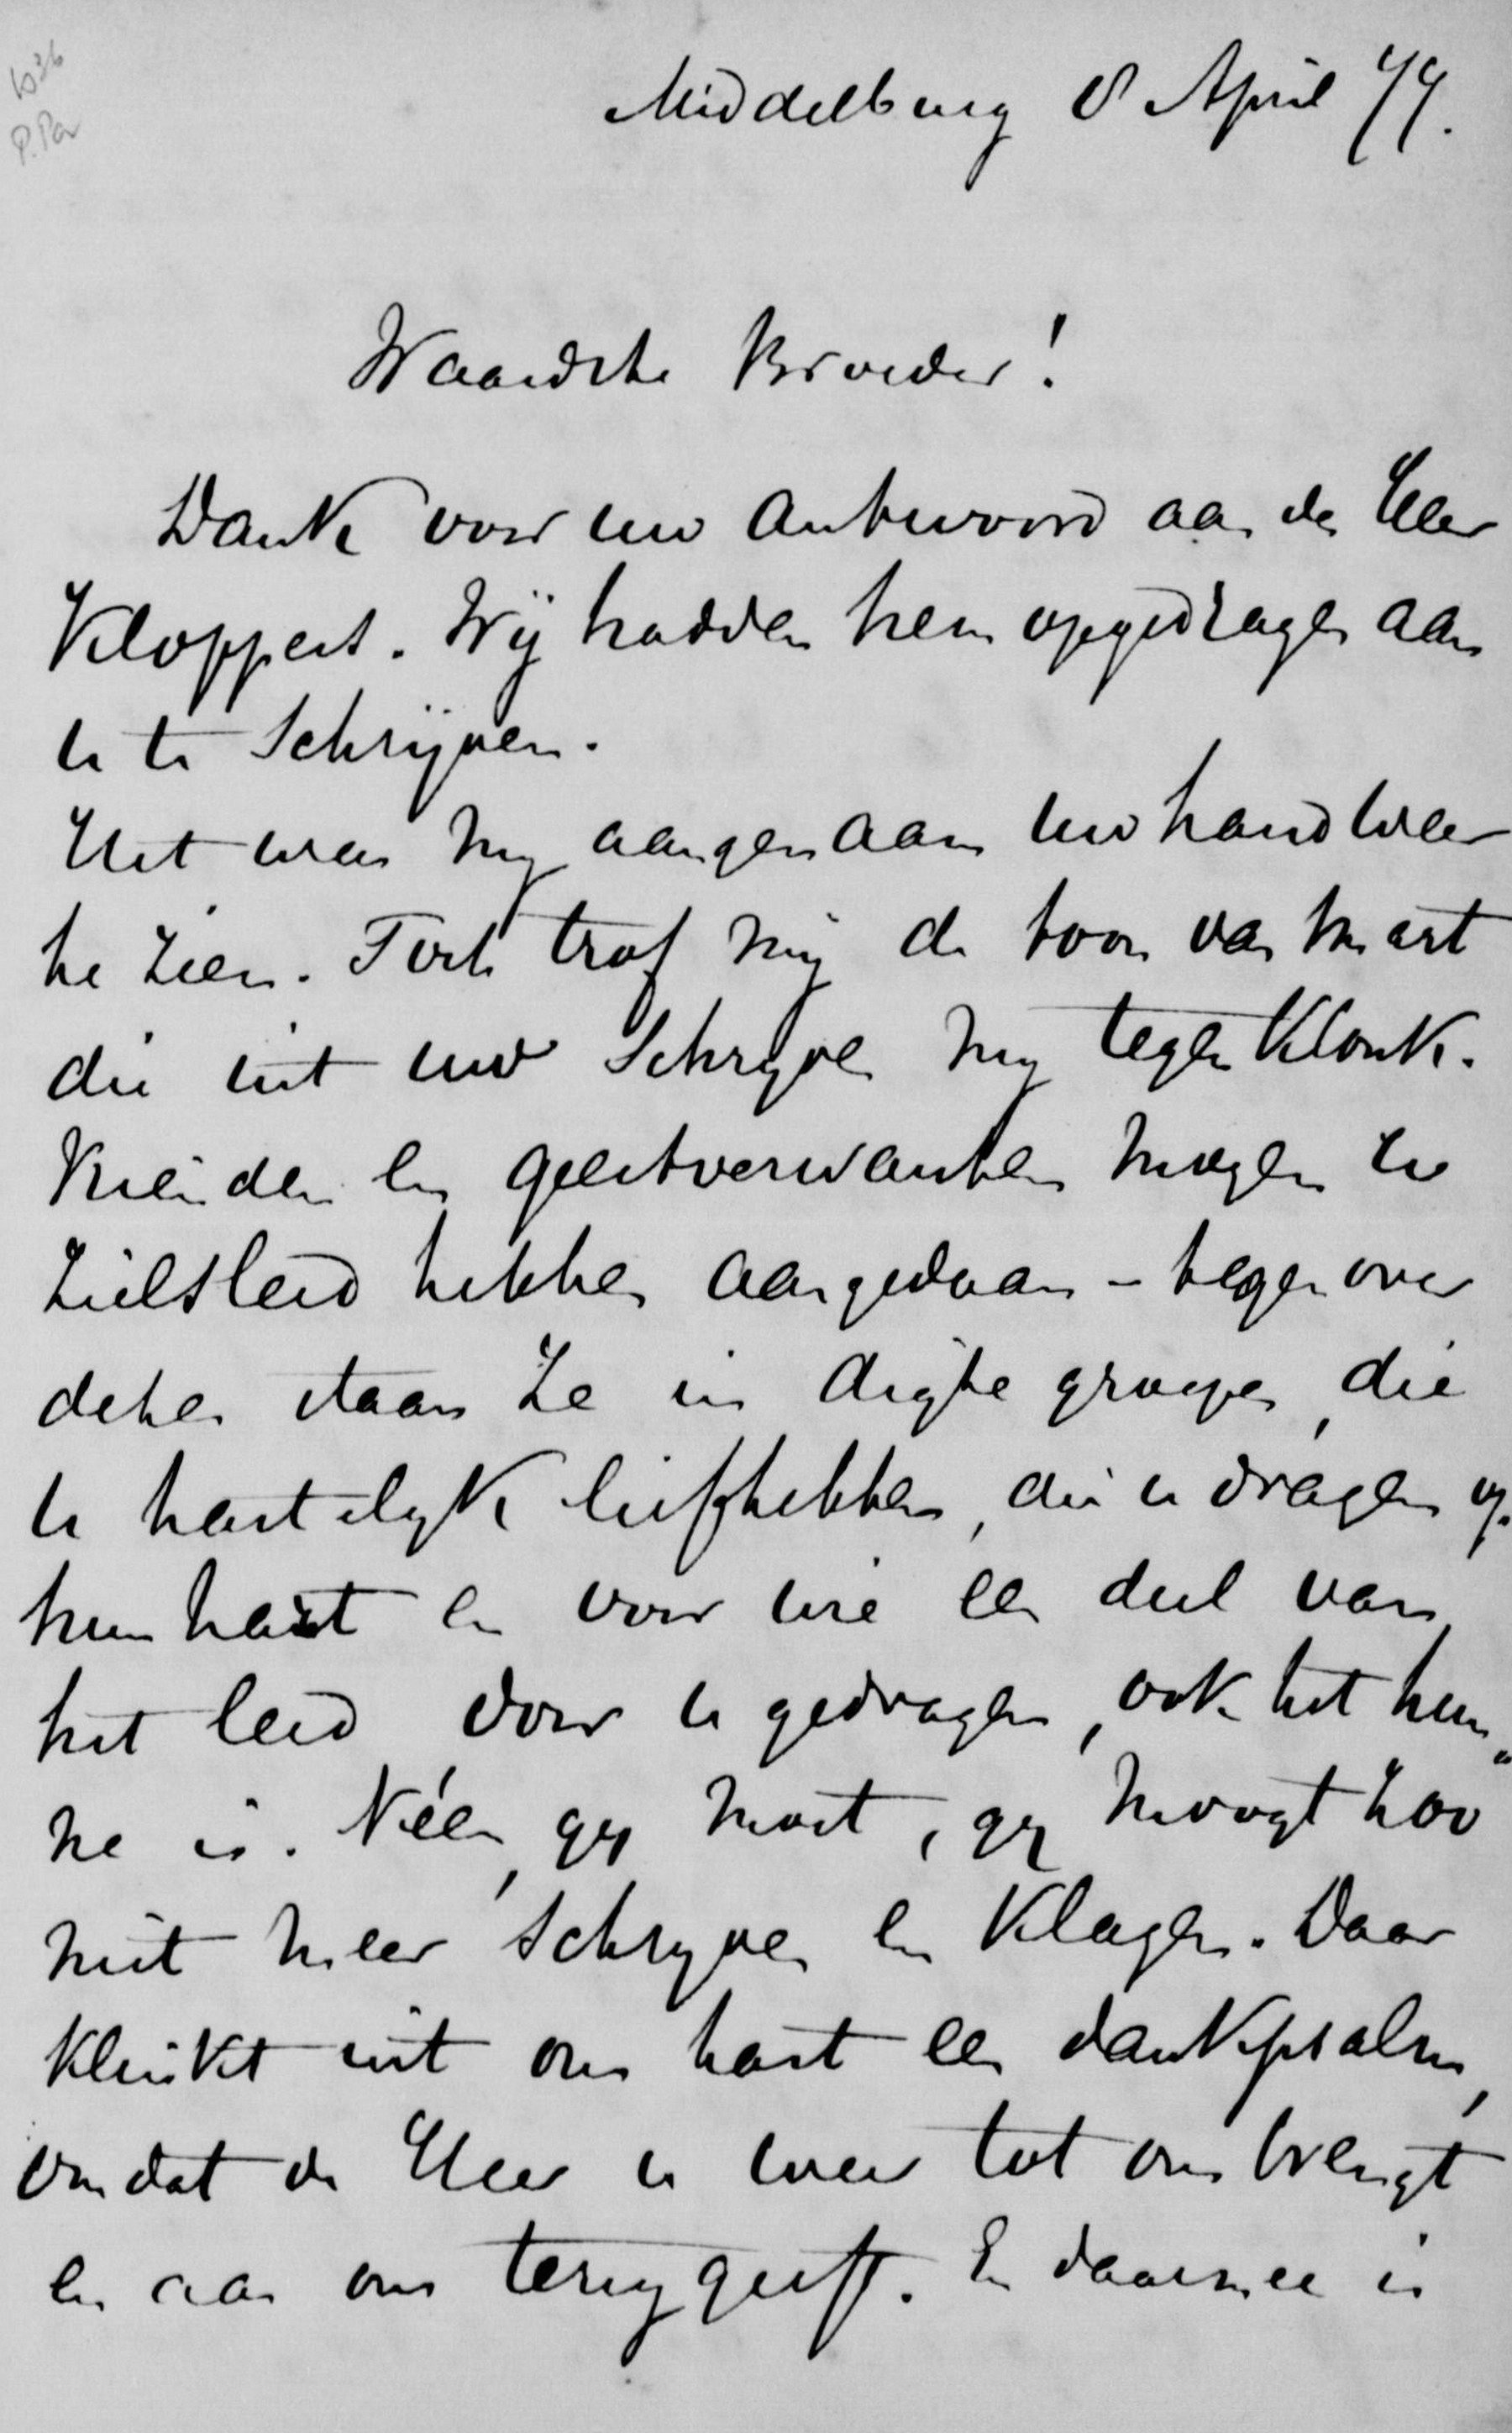 Middelburg 8 April 77.
Waardste Broeder!
Dank voor uw antwoord aan de Heer
Kloppert. Wij hadden hem opgedragen aan
u te schrijven.
Het was mij aangenaam uw hand weer
te zien. Toch trof mij de toon van smart
die uit uw schrijven mij tegen klonk.
Vrienden en geestverwanten mogen u
zielsleed hebben aangedaan - tegenover
dezen staan ze in digte groepen, die
u hartelijk liefhebben, die u dragen op
hun hart en voor wie een deel van
het leed door u gedragen, ook het hun„
ne is. Néén, gij moet, gij moogt zoo
niet meer schrijven en klagen. Daar
klinkt uit ons hart een dankpsalm,
omdat de Heer u weer tot ons brengt
en aan ons teruggeeft. En daarmee is